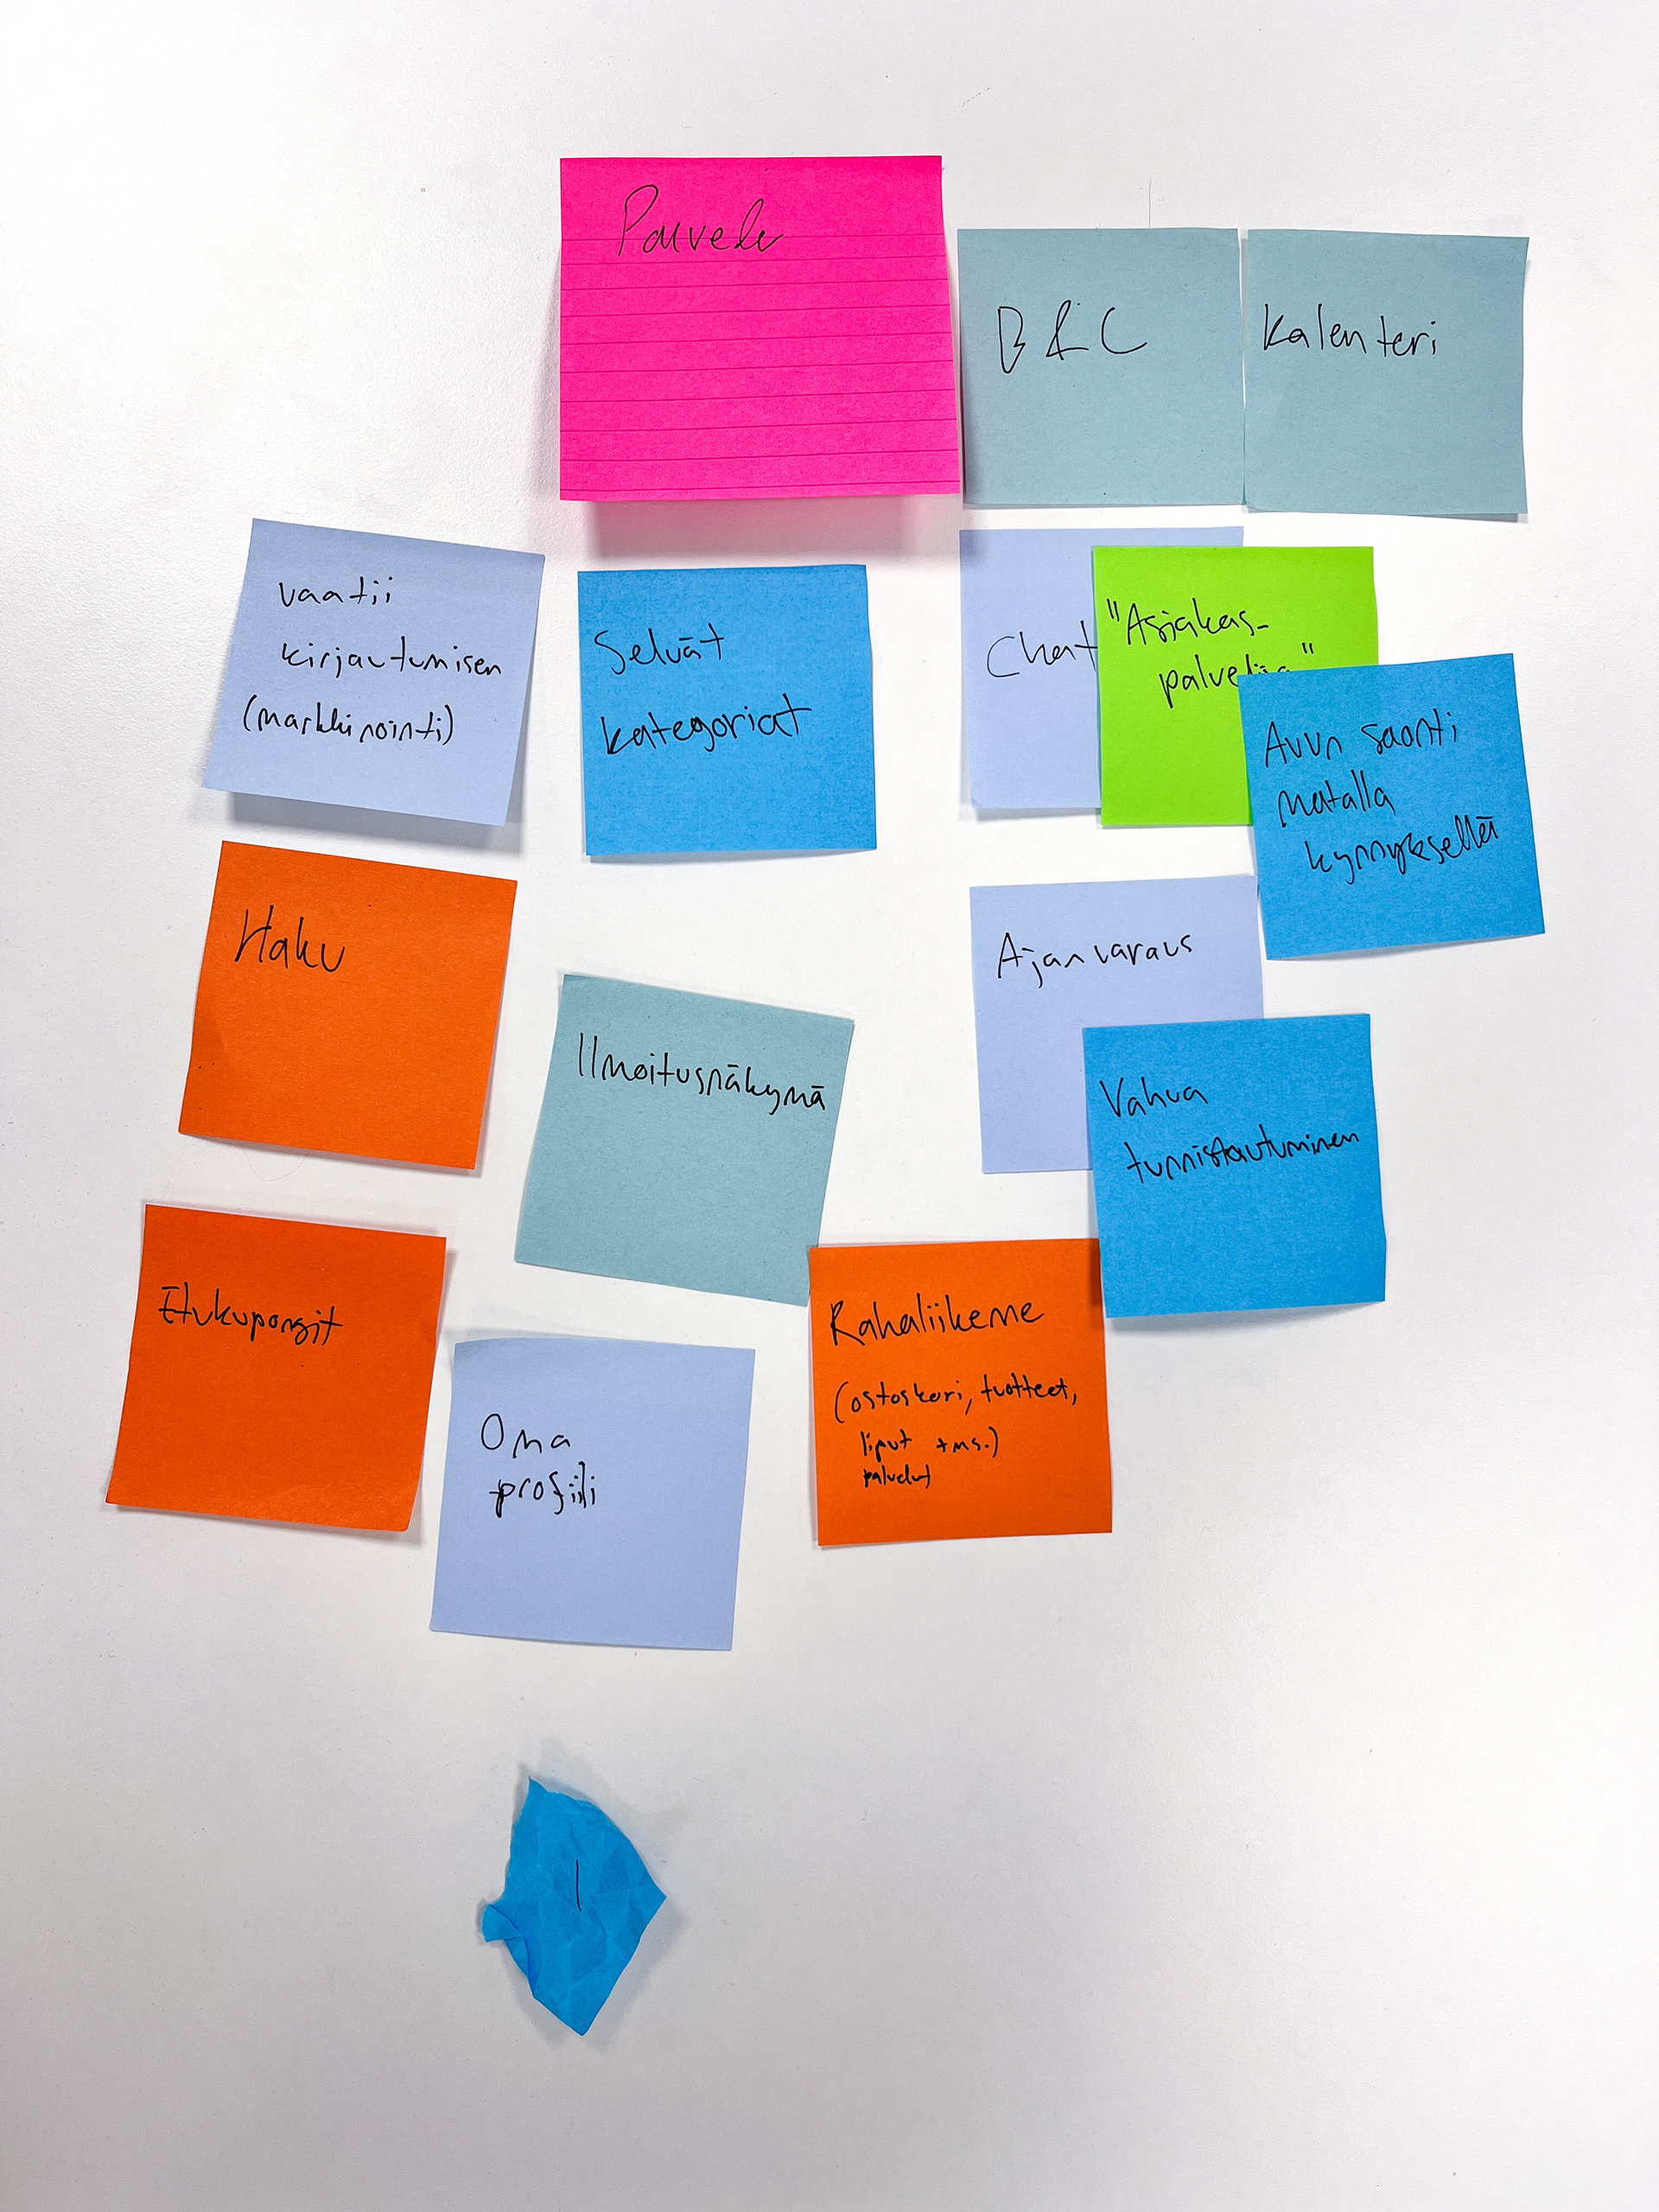 Palvelu
B & C
Kalenteri
vaatii
kirjautumisen
(markkinointi)
Selvät
kategoriat
Chat
"Asiakas-
palvelija"
Avun saanti
matalla
kynnyksellä
Haku
Ilmoitusnäkymä
Ajanvaraus
Vahva
tunnistautuminen
Etukupongit
Oma
profiili
Rahaliikenne
(ostoskori, tuotteet,
liput tms.)
palvelut